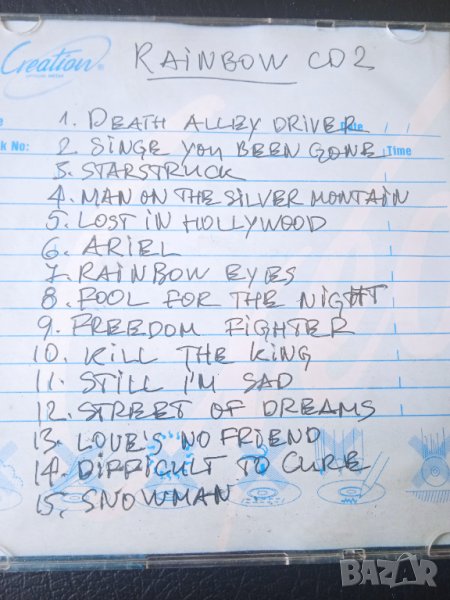 Creation®
RAINBOW CD2
1. DEATH ALLEY DRIVER
Date / /
k No:
2. SINGE YOU BEEN GONE
Time
3. STARSTRUCK
4. MAN ON THE SILVER MONTAIN
5. LOST IN HOLLYWOOD
6. ARIEL
7. RAINBOW EYES
8. FOOL FOR THE NIGHT
9. FREEDOM FIGHTER
10. KILL THE KING
11. STILL I'M SAD
12. STREET OF DREAMS
13. LOVE'S NO FRIEND
14. DIFFICULT TO CURE
15. SNOWMAN
BAZAR